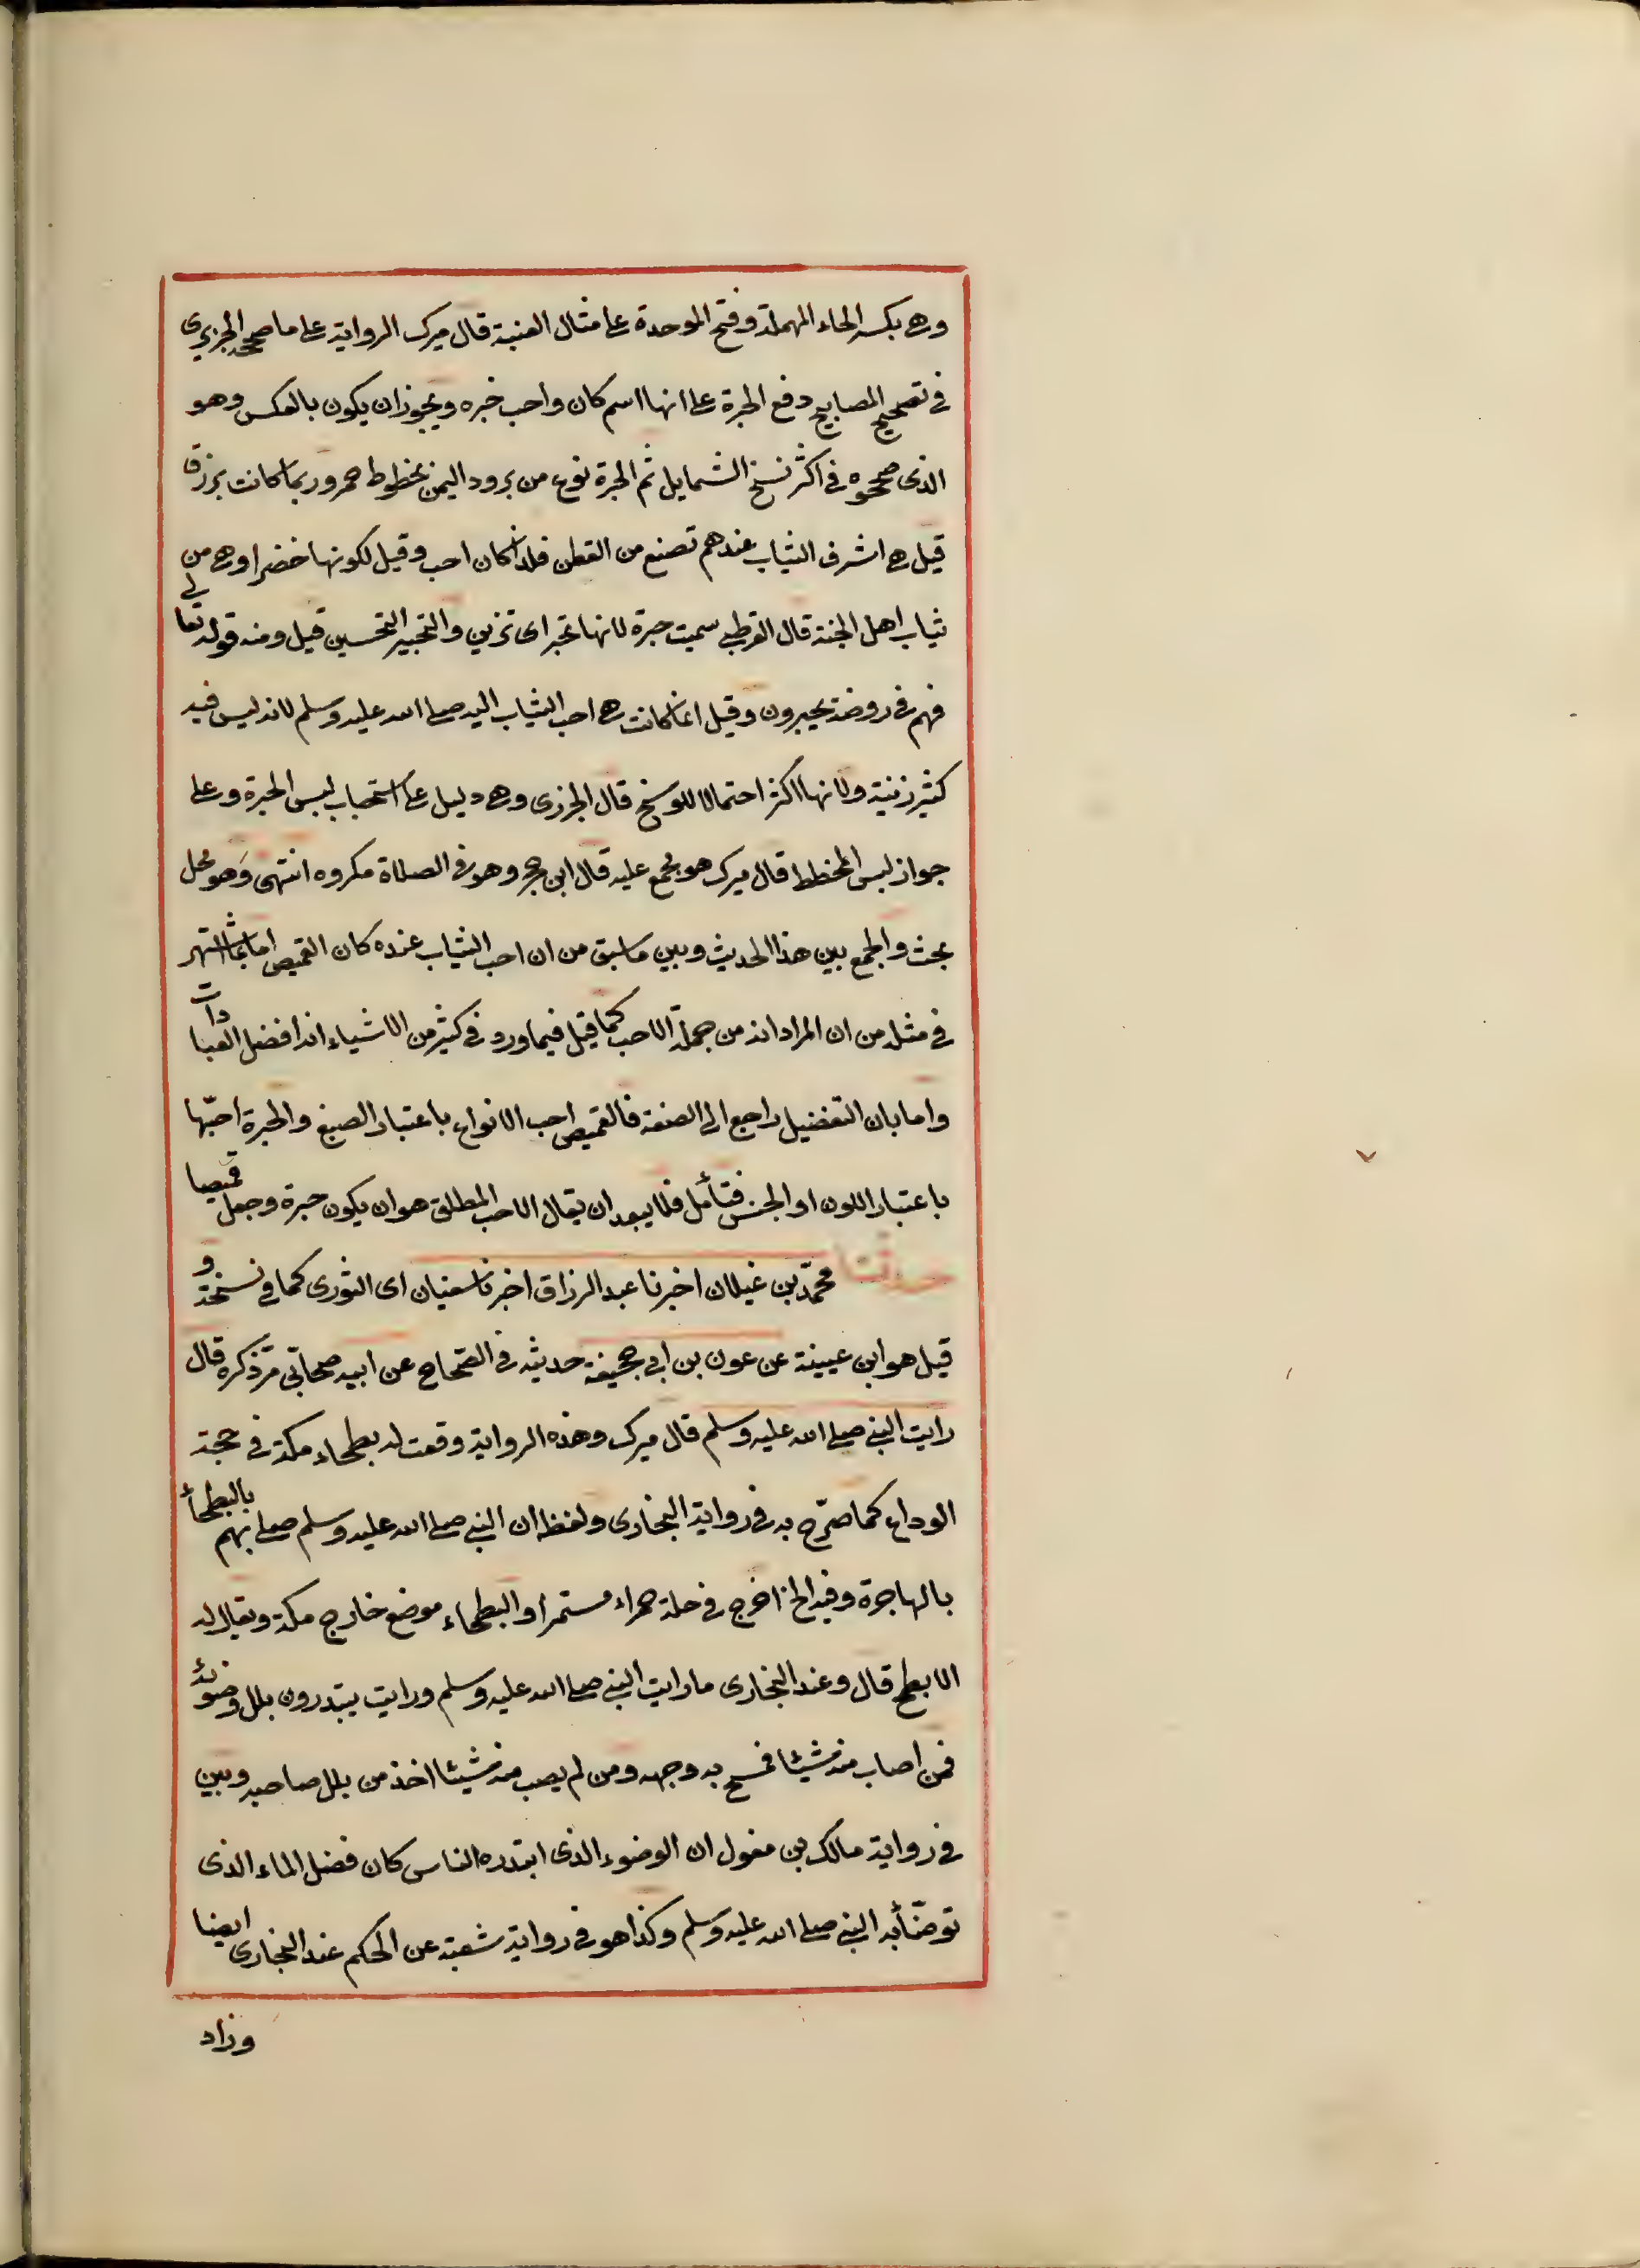 وهى بكسر الحاء المهملة وفتح الموحدة على مثال العنبة قال ميرك الرواية على ما صححه الجزرى
فى تصحيح المصابيح رفع الحبرة على انها اسم كان واحب خبره ويجوز ان يكون بالعكس وهو
الذى صححوه فى اكثر نسخ الشمايل ثم الحبرة نوع من برود اليمن بخطوط حمر وربما كانت بزرق
قيل هى اشرف الثياب عندهم تصنع من القطن فلذا كان احب وقيل لكونها خضرا وهى من
ثياب اهل الجنة قال القرطبى سميت حبرة لانها تحبر اى تزين والتحبير التحسين قيل ومنه قوله تعالى
فهم فى روضة يحبرون وقيل انما كانت هى احب الثياب اليه صلى الله عليه وسلم لانه ليس فيه
كثير زينة ولانها اكثر احتمالا للوسخ قال الجزرى وهى دليل على استحباب لبس الحبرة وعلى
جواز لبس المخطط قال ميرك هو مجمع عليه قال ابن حجر وهو فى الصلاة مكروه انتهى وهو محل
بحث والجمع بين هذا الحديث وبين ما سبق من ان احب الثياب عنده كان القميص اما بما اشتهر
فى مثله من ان المراد انه من جملة الاحب كما قيل فيما ورد فى كثير من الاشياء انه افضل العبادات
واما بان التفضيل راجع الى الصفة فالقميص احب الانواع باعتبار الصنع والحبرة احبّها
باعتبار اللون او الجنس فتأمل فلا يبعد ان يقال الاحب المطلق هو ان يكون حبرة وجعل قميصا
حدثنا محمّد بن غيلان اخبرنا عبد الرزاق اخبرنا سفيان اى الثورى كما فى نسخة و
قيل هو ابن عيينة عن عون بن ابى جحيفة حديثه فى الصّحاح عن ابيه صحابّى مرّ ذكره قال
رايت النبى صلى الله عليه وسلم قال ميرك وهذه الرواية وقعت له بطحاء مكة فى حجة
الوداع كما صرّح به فى رواية البخارى ولفظه ان النبى صلى الله عليه وسلم صلى بهم بالبطحأ
بالهاجرة وفيه الخ اخرج فى حلة حمراء مستمرا والبطحاء موضع خارج مكة ويقال له
الابطح قال وعند البخارى ما رايت النبى صلى الله عليه وسلم ورايت يبتدرون بلل وضوئه
فمن اصاب منه شيئا فمسح به وجهه ومن لم يصب منه شيئا اخذ من بلل صاحبه وبين
فى رواية مالك بن مغول ان الوضوء الذى ابتدره الناس كان فضل الماء الذى
توضّأ به النبى صلى الله عليه وسلم وكذا هو فى رواية شعبة عن الحكم عند البخارى ايضا
وزاد